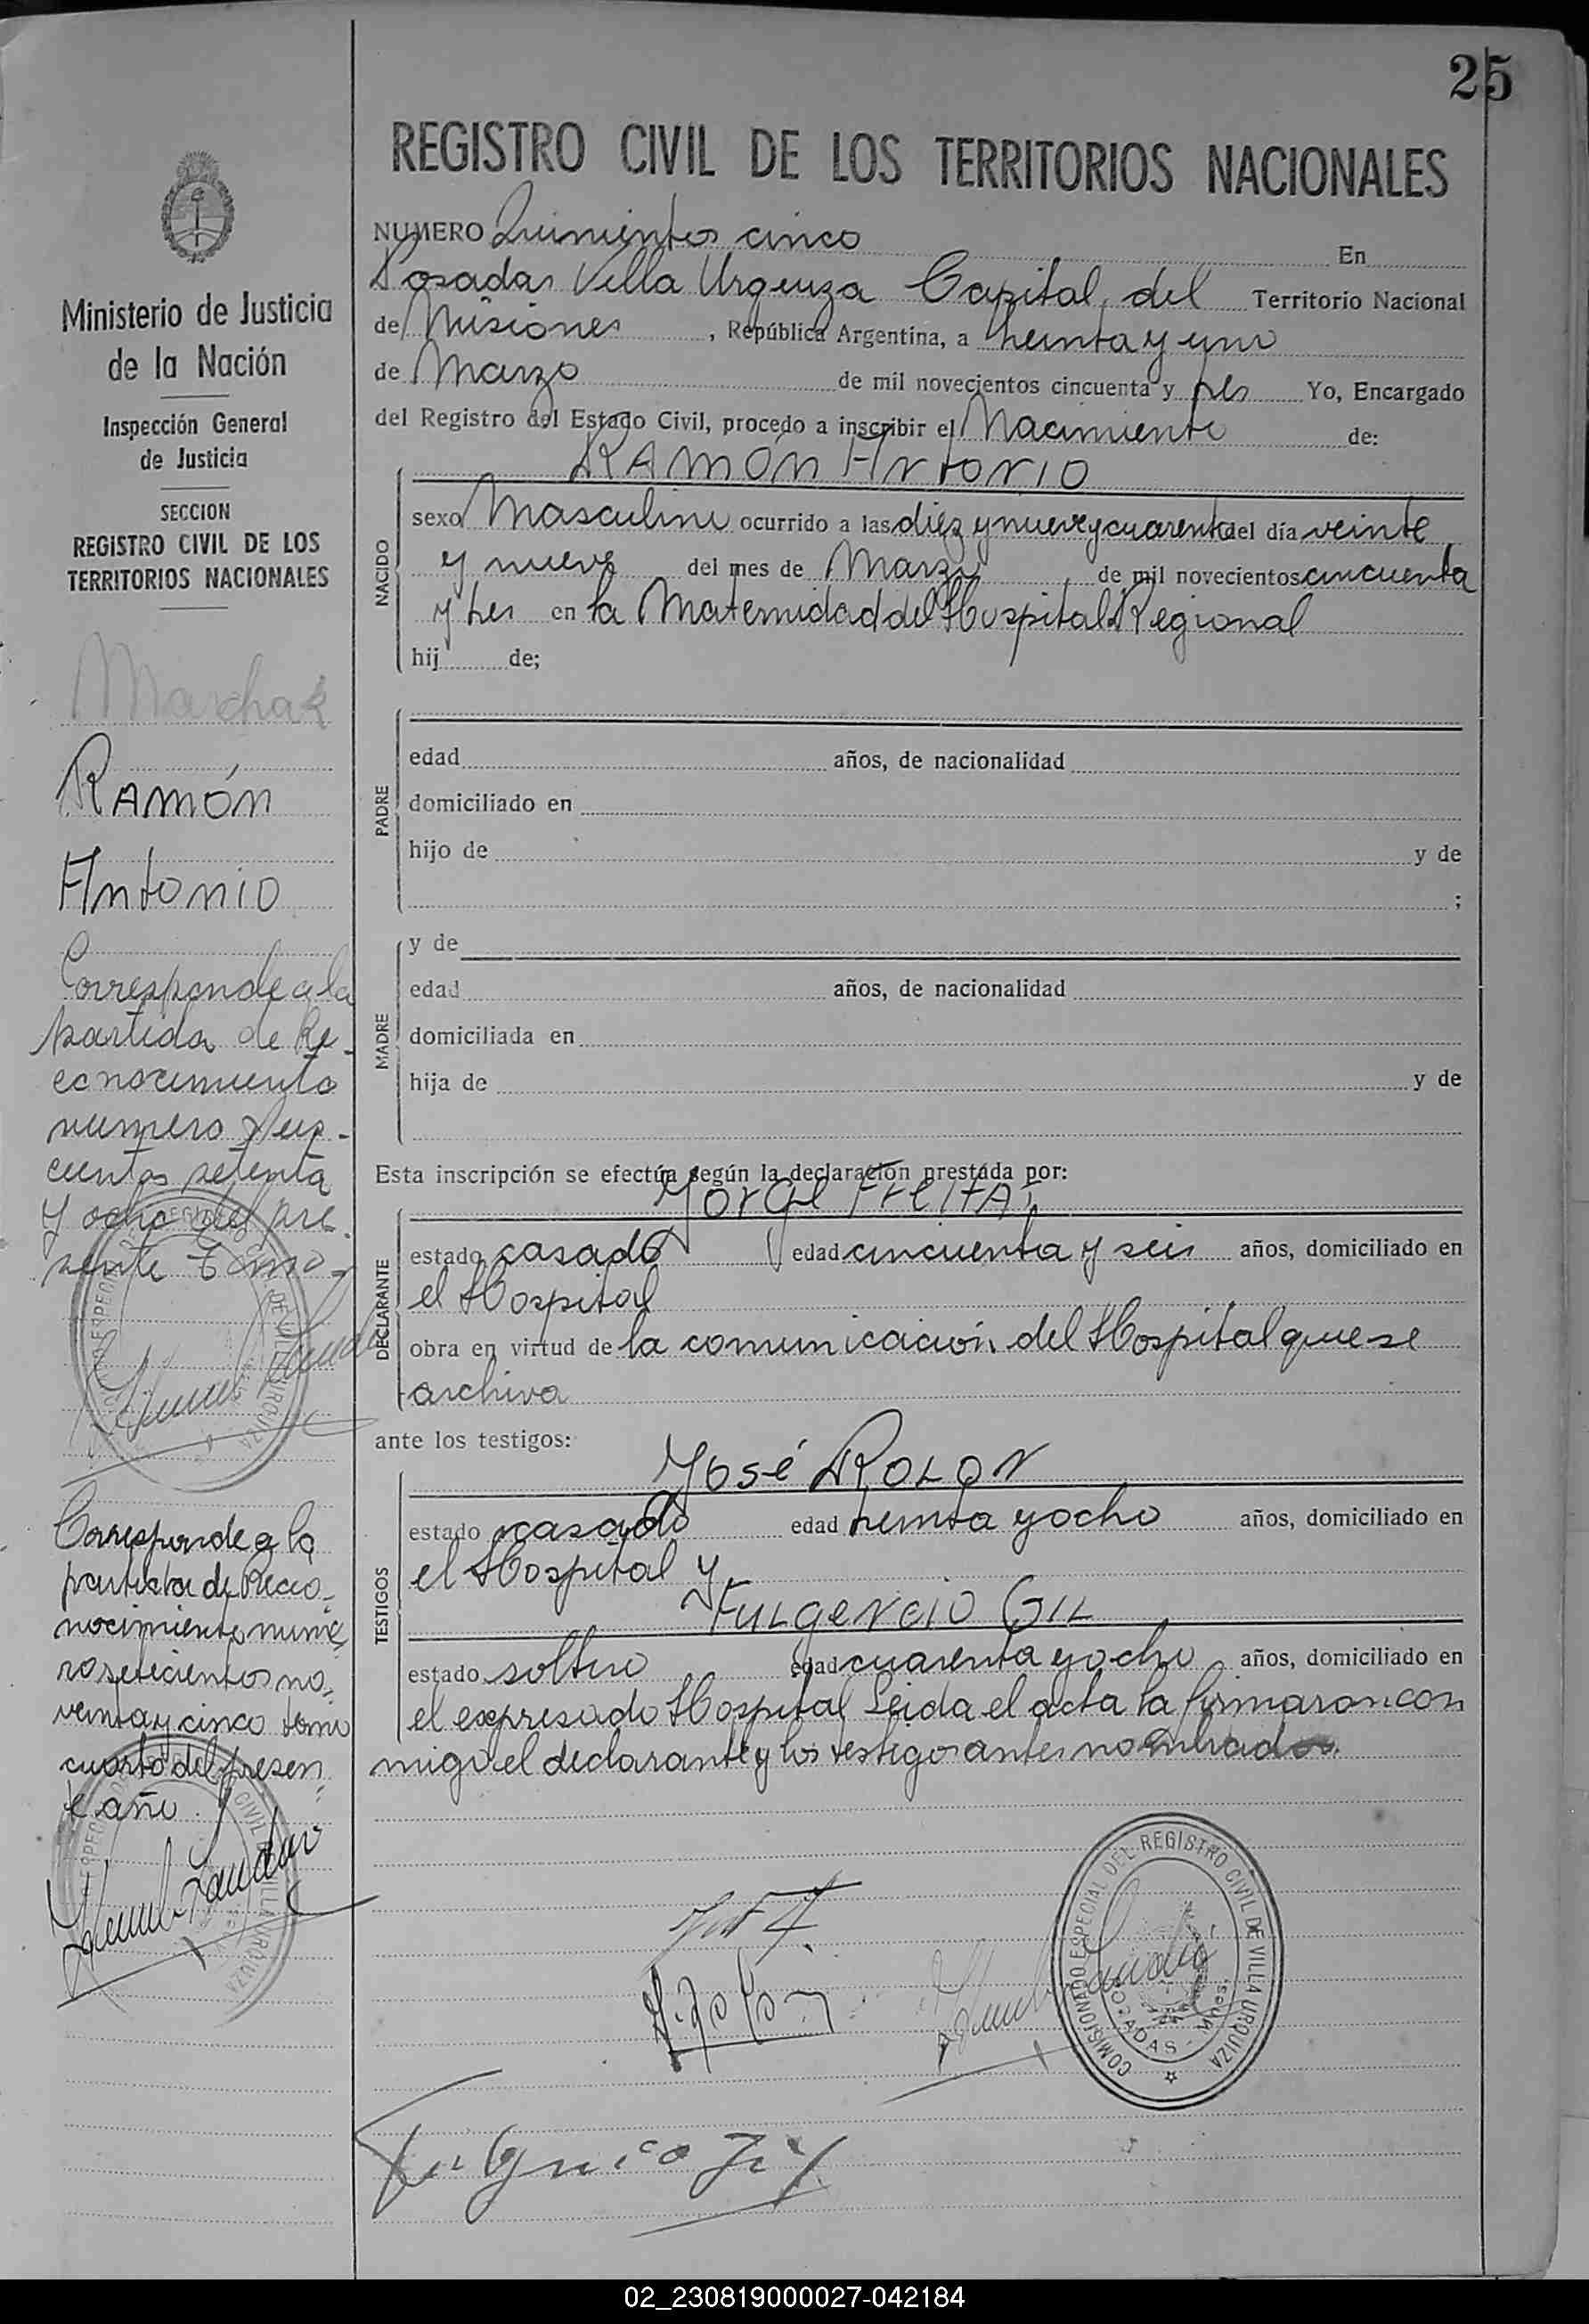 25
REGISTRO CIVIL DE LOS TERRITORIOS NACIONALES
Ministerio de Justicia
de la Nación
Inspección General
de Justicia
SECCION
REGISTRO CIVIL DE LOS
TERRITORIOS NACIONALES
Ramón
Antonio
Corresponde a la
partida de Re-
conocimiento
numero
cientos setenta
y ocho del pre-
sente Tomo-
Corresponde a la
partida de Reco-
nocimiento nume-
ro setecientos no-
venta y cinco tomo
cuarto del presen
te año.
NUMERO Quinientos cinco En
Posadas Villa Urquiza Capital del Territorio Nacional
de Misiones, República Argentina, a treinta y uno
de Marzo de mil novecientos cincuenta y tres Yo, Encargado
del Registro del Estado Civil, procedo a inscribir el Nacimiento de:
RAMÓN Antonio
NACIDO
sexo Masculino ocurrido a las diez y nueve y cuarenta del día veinte
y nueve del mes de Marzo de mil novecientos cincuenta
y tres en la Maternidad del Hospital Regional
hij de;
PADRE
edad años, de nacionalidad
domiciliado en
hijo de y de
;
MADRE
y de
edad años, de nacionalidad
domiciliada en
hija de y de
Esta inscripción se efectúa según la declaración prestada por:
Jorge Freitas
DECLARANTE
estado casado edad cincuenta y seis años, domiciliado en
el Hospital
obra en virtud de la comunicación del Hospital que se
archiva
ante los testigos:
José Rolon
TESTIGOS
estado casado edad treinta y ocho años, domiciliado en
el Hospital y
Fulgencio Gil
estado soltero edad cuarenta y ocho años, domiciliado en
el expresado Hospital Leida el acta la firmaron con
migo el declarante y los testigos antes nombrados.
COMISIONADO ESPECIAL DEL REGISTRO CIVIL DE VILLA URQUIZA
POSADAS - Mnes.
02_230819000027-042184